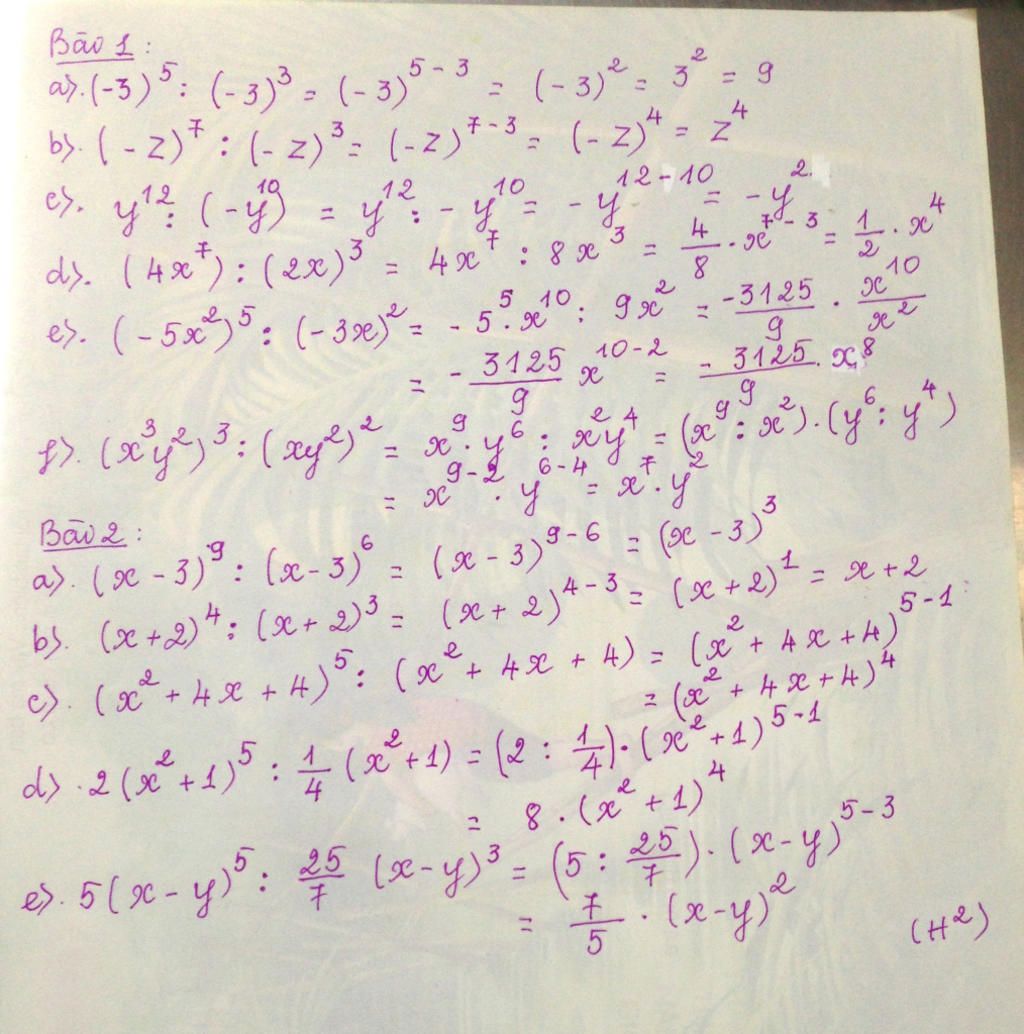 Bài 1 :
a). (-3)^5 : (-3)^3 = (-3)^{5-3} = (-3)^2 = 3^2 = 9
b). (-z)^7 : (-z)^3 = (-z)^{7-3} = (-z)^4 = z^4
c). y^{12} : (-y^{10}) = y^{12} : -y^{10} = -y^{12-10} = -y^2.
d). (4x^7) : (2x)^3 = 4x^7 : 8x^3 = \frac{4}{8} . x^{7-3} = \frac{1}{2} . x^4
e). (-5x^2)^5 : (-3x)^2 = -5^5 . x^{10} : 9x^2 = \frac{-3125}{9} . \frac{x^{10}}{x^2}
= -\frac{3125}{9} x^{10-2} = \frac{-3125}{9} . x^8
f). (x^3y^2)^3 : (xy^2)^2 = x^9 . y^6 : x^2y^4 = (x^9 : x^2) . (y^6 : y^4)
= x^{9-2} . y^{6-4} = x^7 . y^2
Bài 2 :
a). (x-3)^9 : (x-3)^6 = (x-3)^{9-6} = (x-3)^3
b). (x+2)^4 : (x+2)^3 = (x+2)^{4-3} = (x+2)^1 = x+2
c). (x^2+4x+4)^5 : (x^2+4x+4) = (x^2+4x+4)^{5-1}
= (x^2+4x+4)^4
d). 2(x^2+1)^5 : \frac{1}{4} (x^2+1) = (2 : \frac{1}{4}) . (x^2+1)^{5-1}
= 8 . (x^2+1)^4
e). 5(x-y)^5 : \frac{25}{7} (x-y)^3 = (5 : \frac{25}{7}) . (x-y)^{5-3}
= \frac{7}{5} . (x-y)^2
(H^2)